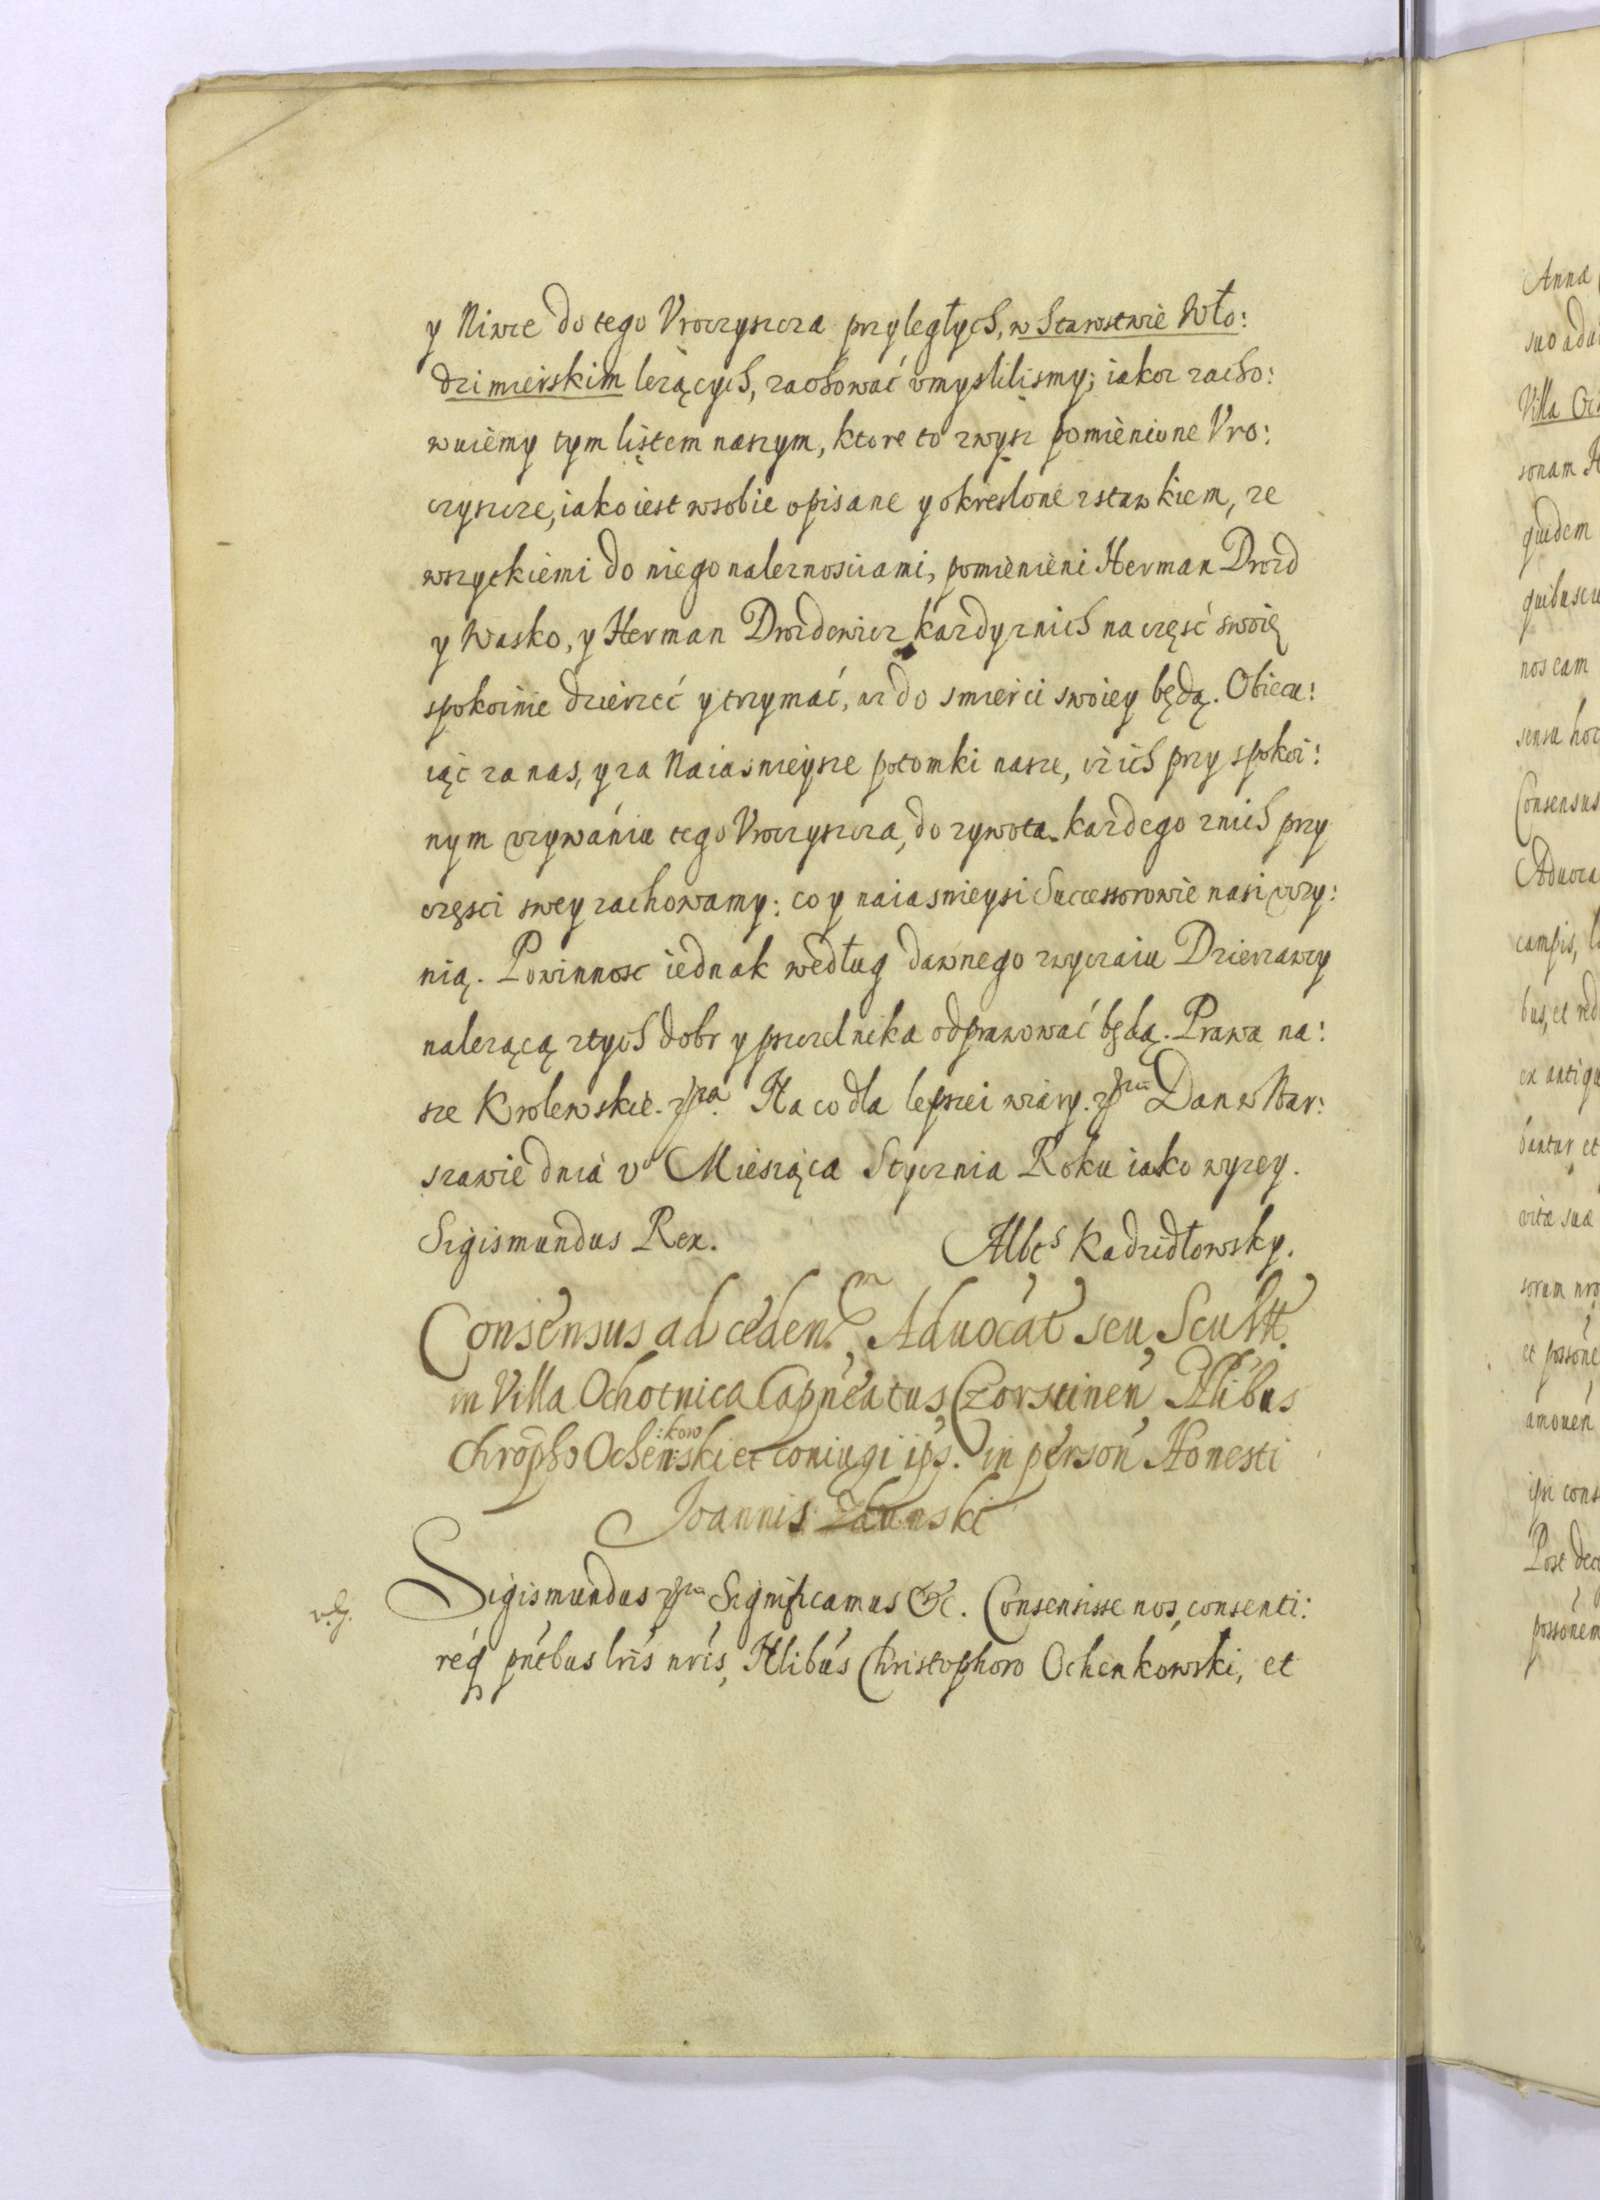 y Niwie do tego Vroczyszcza przyległych, w Starostwie Wło:
dzimierskim leżących, zachować vmyslilismy; iakoz zacho:
wuiemy tym listem naszym, ktore to zwysz pomienione Vro:
czyszcze, iako iest wsobie opisane y okreslone zstawkiem, ze
wszytkiemi do niego naleznosciami, pomienieni Herman Drozd
y Wasko, y Herman Drozdowicz kazdy znich na część swoię
spokoinie dzierzeć y trzymać, az do smierci swoiey będą. Obiecu:
iąc za nas, y za Naiasnieysze potomki nasze, iż ich przy spokoi:
nym vzywániu tego Vroczyszcza, do zywota kazdego znich przy
częsci swey zachowamy: co y naiasnieysi Successorowie nasi vczy:
nią. Powinnosc iednak według dawnego zwyczaiu Dzierzawcy
nalezącą ztych dobr y pszczelnika odprawować będą. Prawa na:
sze Krolewskie. Na co dla lepszei wiáry. Dan w War:
szawie dnia v Miesiąca Stycznia Roku iako wyzey.
Sigismundus Rex. Albts Kadzidłowsky.
Consensus ad cedend Aduocat seu Scultt
in Villa Ochotnica Capneatus Czorstinen Nlibus
Chrophо Ochenskiet coniugi ips. in person Honesti
:kow
Joannis Zdunski
Sigismundus Significamus &c. Consensisse nos, consenti:
req pntbus lris nris, Nlibus Christophoro Ochenkowski, et
Anna
Villa
sonam
quidem
nos eam
Consensus
campis,
ex antiqu
vitæ suæ
amouen
ipsi cons